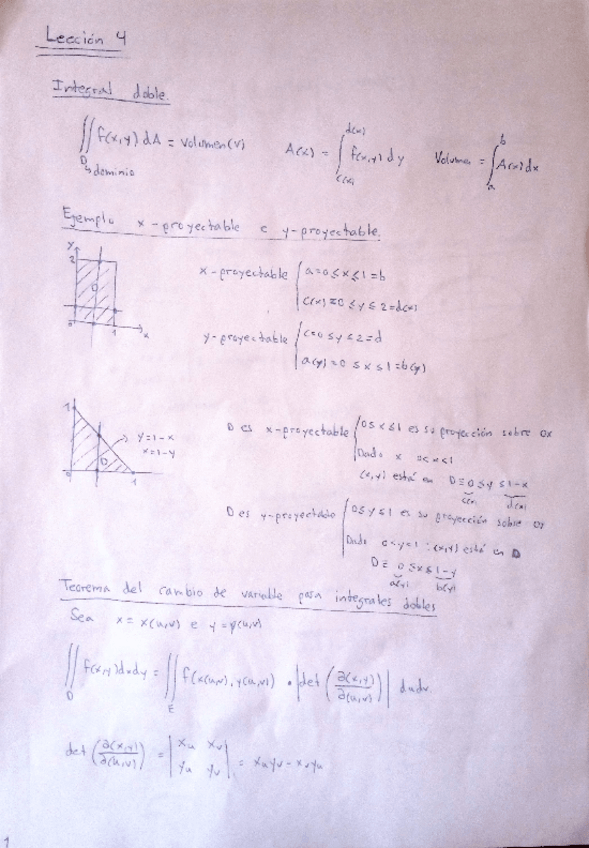 Lección 4
Integral doble.
∬ f(x,y) dA = Volumen(V)    A(x) = ∫ f(x,y) dy    Volumen = ∫ A(x) dx
d(x)    b
D    c(x)    a
↳ dominio
Ejemplo x-proyectable e y-proyectable.
y
2
D
0    1    x
x-proyectable { a=0≤x≤1=b
c(x)=0≤y≤2=d(x)
y-proyectable { c=0≤y≤2=d
a(y)=0≤x≤1=b(y)
1
y=1-x
x=1-y
D
0    1
D es x-proyectable { 0≤x≤1 es su proyección sobre OX
Dado x 0<x<1
(x,y) está en D≡0≤y≤1-x
c(x)    d(x)
D es y-proyectable { 0≤y≤1 es su proyección sobre OY
Dado : (x,y) está en D
D≡ 0≤x≤1-y
a(y)    b(y)
Teorema del cambio de variable para integrales dobles
Sea x = x(u,v) e y = y(u,v)
∬ f(x,y)dxdy = ∬ f(x(u,v), y(u,v)) · |det (∂(x,y)/∂(u,v))| dudv
D    E
det (∂(x,y)/∂(u,v)) = | xu xv | = xu yv - xv yu
| yu yv |
1